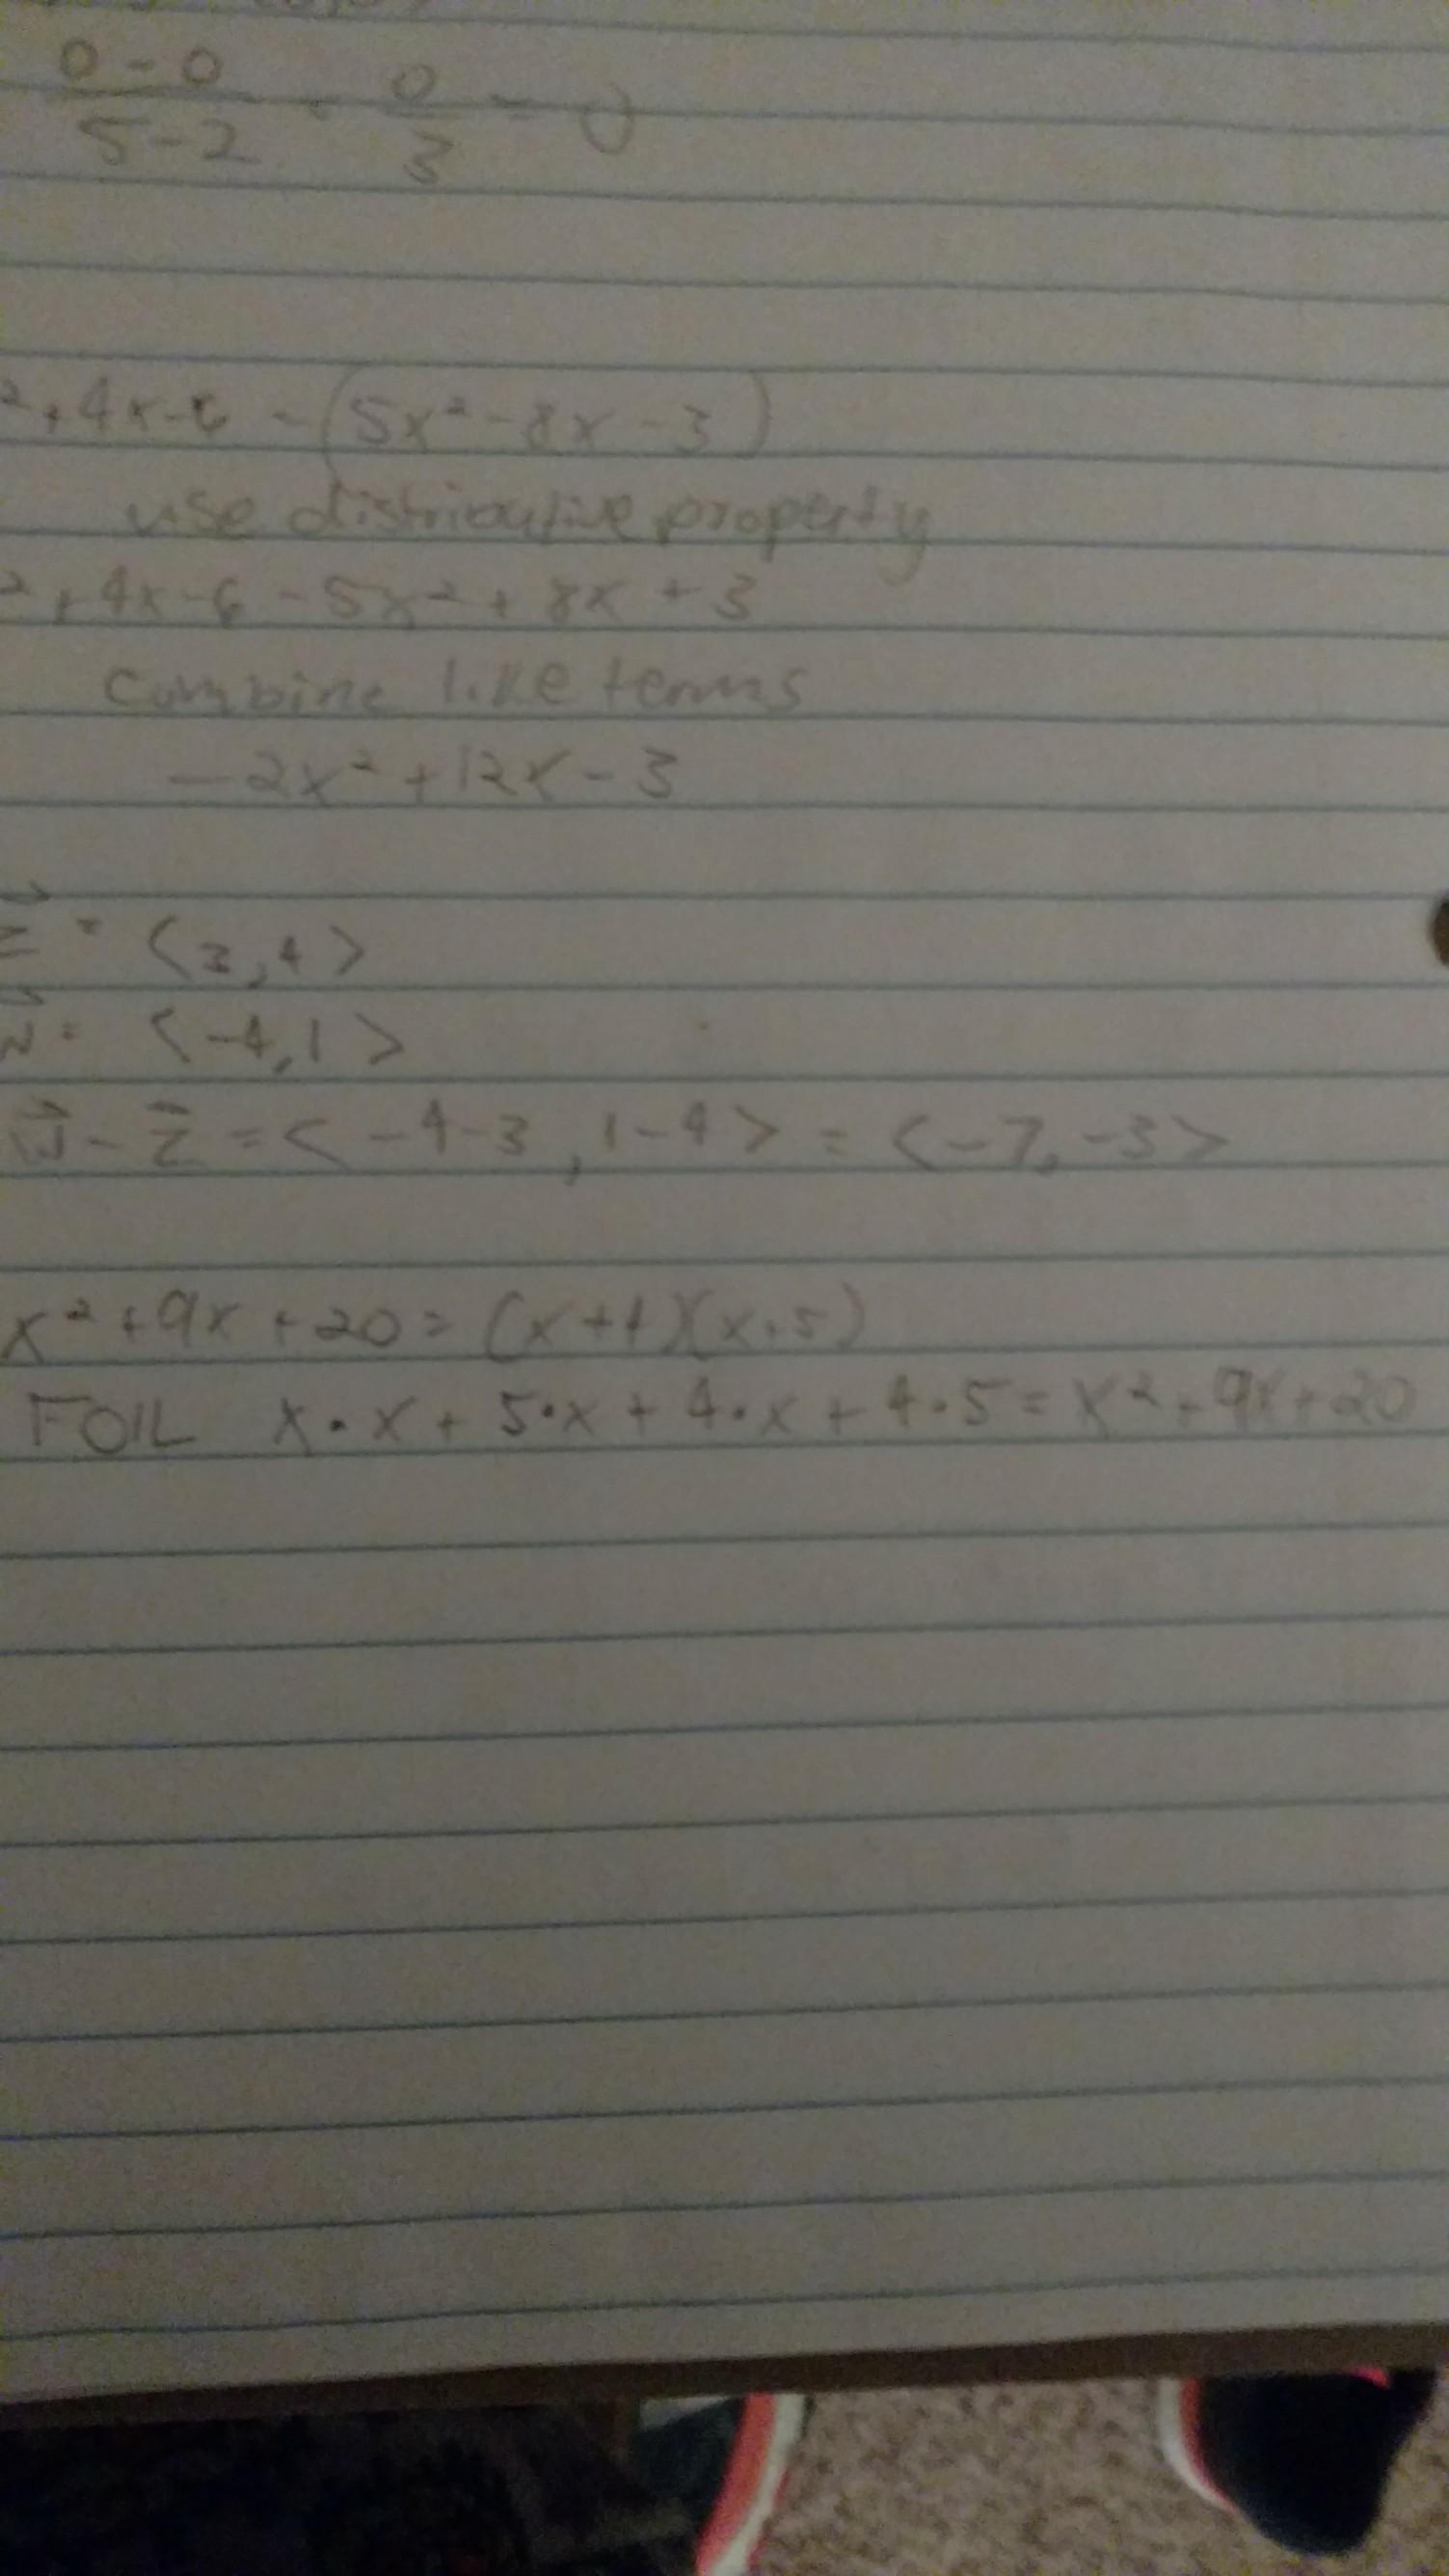 0-0
5-2 = 0/3 = 0
²+4x-6 -(5x²-8x-3)
use distributive property
²+4x-6-5x²+8x+3
combine like terms
-2x²+12x-3
z = <3,4>
w = <-4,1>
w⃗ - z⃗ = <-4-3,1-4> = <-7,-3>
x²+9x+20 = (x+4)(x+5)
FOIL x·x+5·x+4·x+4·5=x²+9x+20